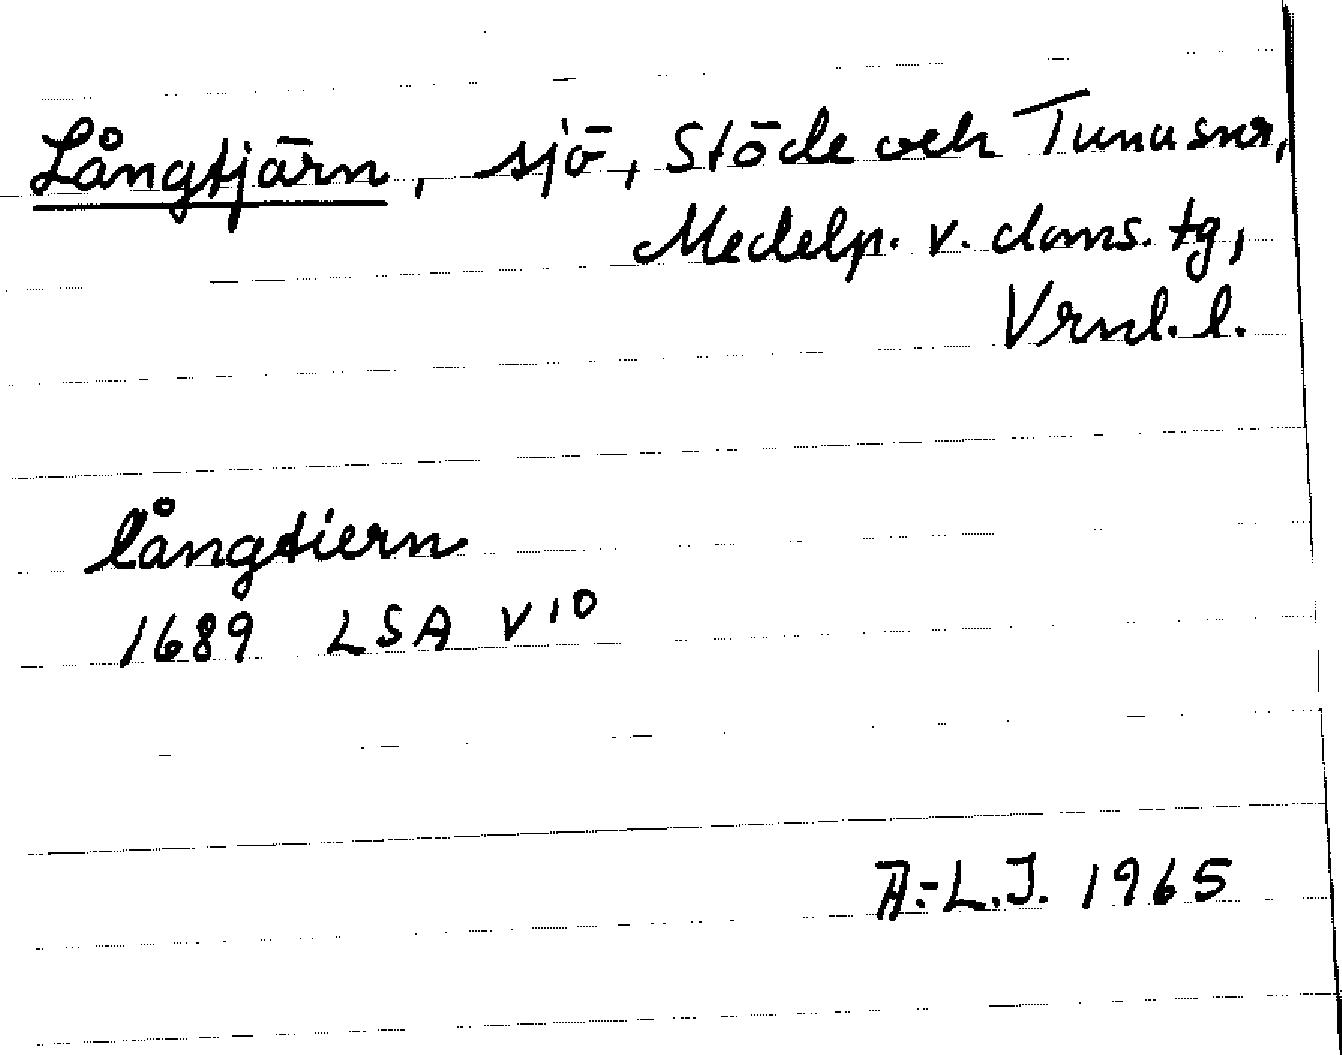 Långtjärn, sjö, Stöde och Tuna snr,
Medelp. v. doms. tg,
Vrnl. l.
långtiern
1689 LSA V 10
A.-L.J. 1965